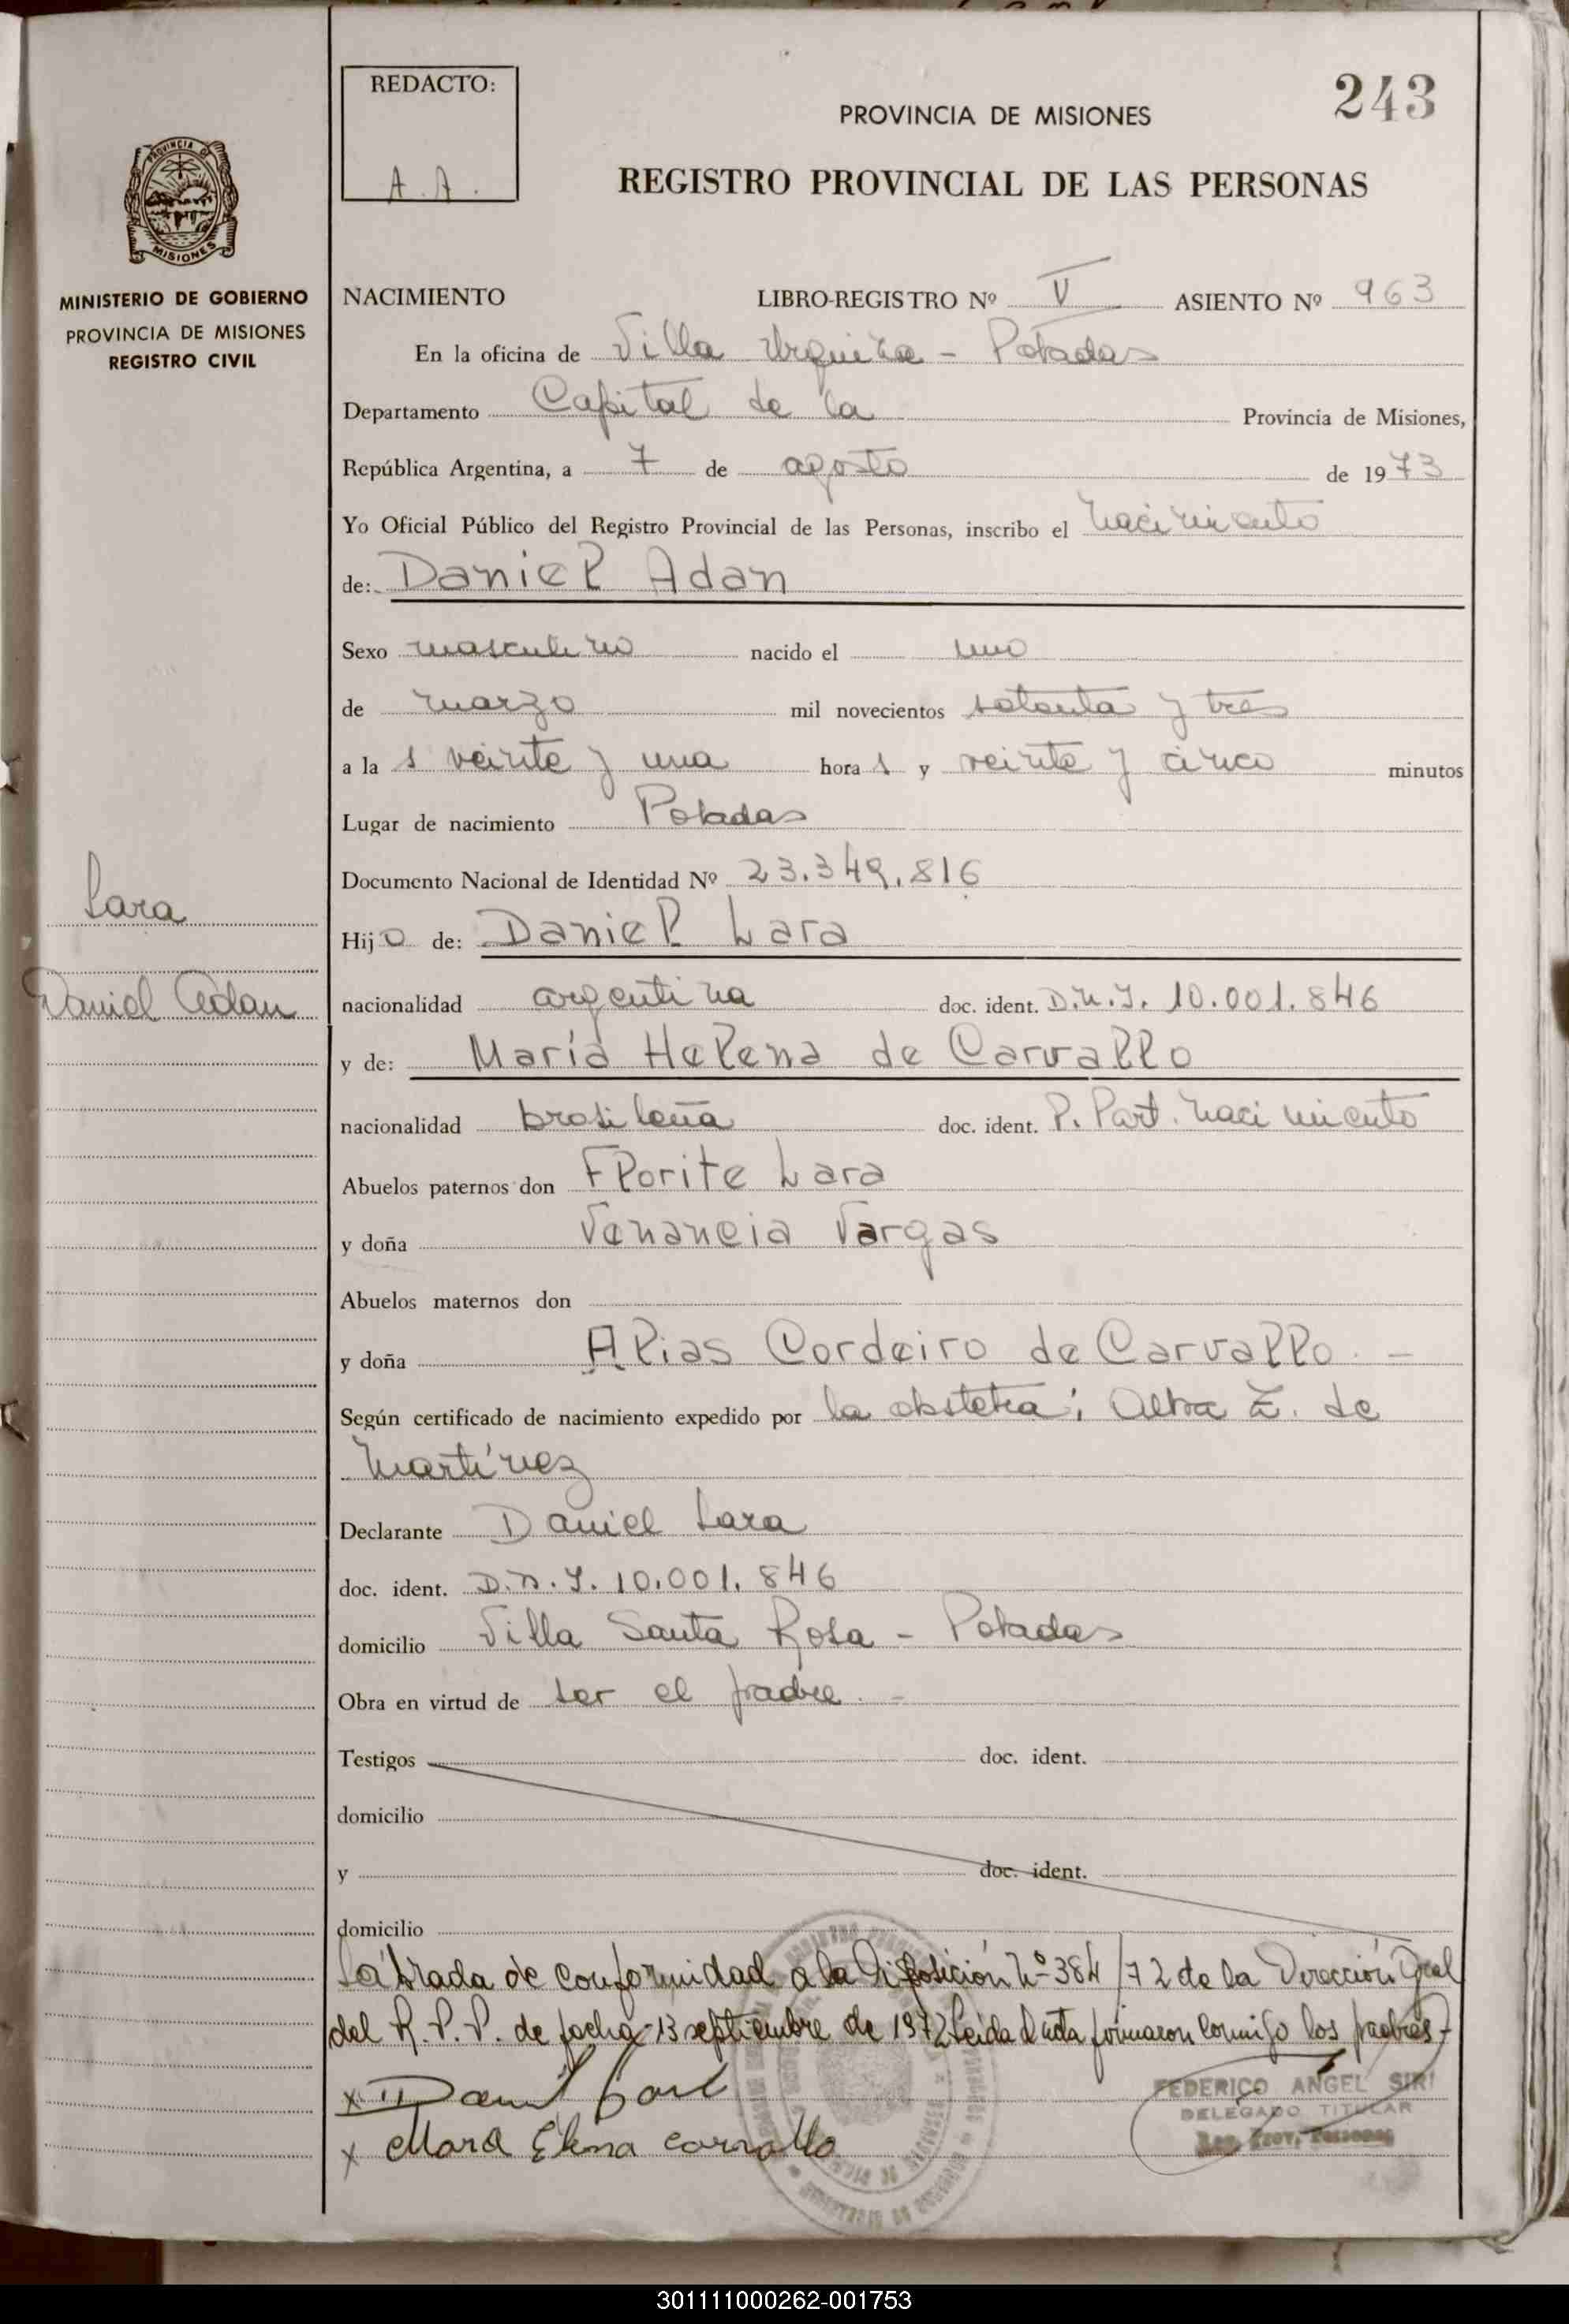 243
REDACTO:
A. A.
PROVINCIA DE MISIONES
REGISTRO PROVINCIAL DE LAS PERSONAS
PROVINCIA DE
MISIONES
MINISTERIO DE GOBIERNO
PROVINCIA DE MISIONES
REGISTRO CIVIL
NACIMIENTO LIBRO-REGISTRO Nº V ASIENTO Nº 963
En la oficina de Villa Urquiza - Posadas
Departamento Capital de la Provincia de Misiones,
República Argentina, a 7 de agosto de 1973
Yo Oficial Público del Registro Provincial de las Personas, inscribo el nacimiento
de: Daniel Adan
Sexo masculino nacido el uno
de marzo mil novecientos setenta y tres
a la s veinte y una hora s y veinte y cinco minutos
Lugar de nacimiento Posadas
Documento Nacional de Identidad Nº 23.349.816
Lara
Hijo de: Daniel Lara
Daniel Adan
nacionalidad argentina doc. ident. D.N.I. 10.001.846
y de: María Helena de Carvallo
nacionalidad brasileña doc. ident. P. Part. nacimiento
Abuelos paternos don Florite Lara
y doña Venancia Vargas
Abuelos maternos don
y doña Alias Cordeiro de Carvallo. -
Según certificado de nacimiento expedido por la obstetra; Alba Z. de
Martínez
Declarante Daniel Lara
doc. ident. D.N.I. 10.001.846
domicilio Villa Santa Rosa - Posadas
Obra en virtud de ser el padre. -
Testigos doc. ident.
domicilio
y doc. ident.
domicilio
Labrada de conformidad a la Disposición Nº 384/72 de la Dirección Gral
del R.P.P. de fecha 13 septiembre de 1972 Leida el acta firmaron conmigo los padres -
x Daniel Lara
x Mara Elena Carvallo
FEDERICO ANGEL SIRI
DELEGADO TITULAR
Reg. Prov. Personas
301111000262-001753